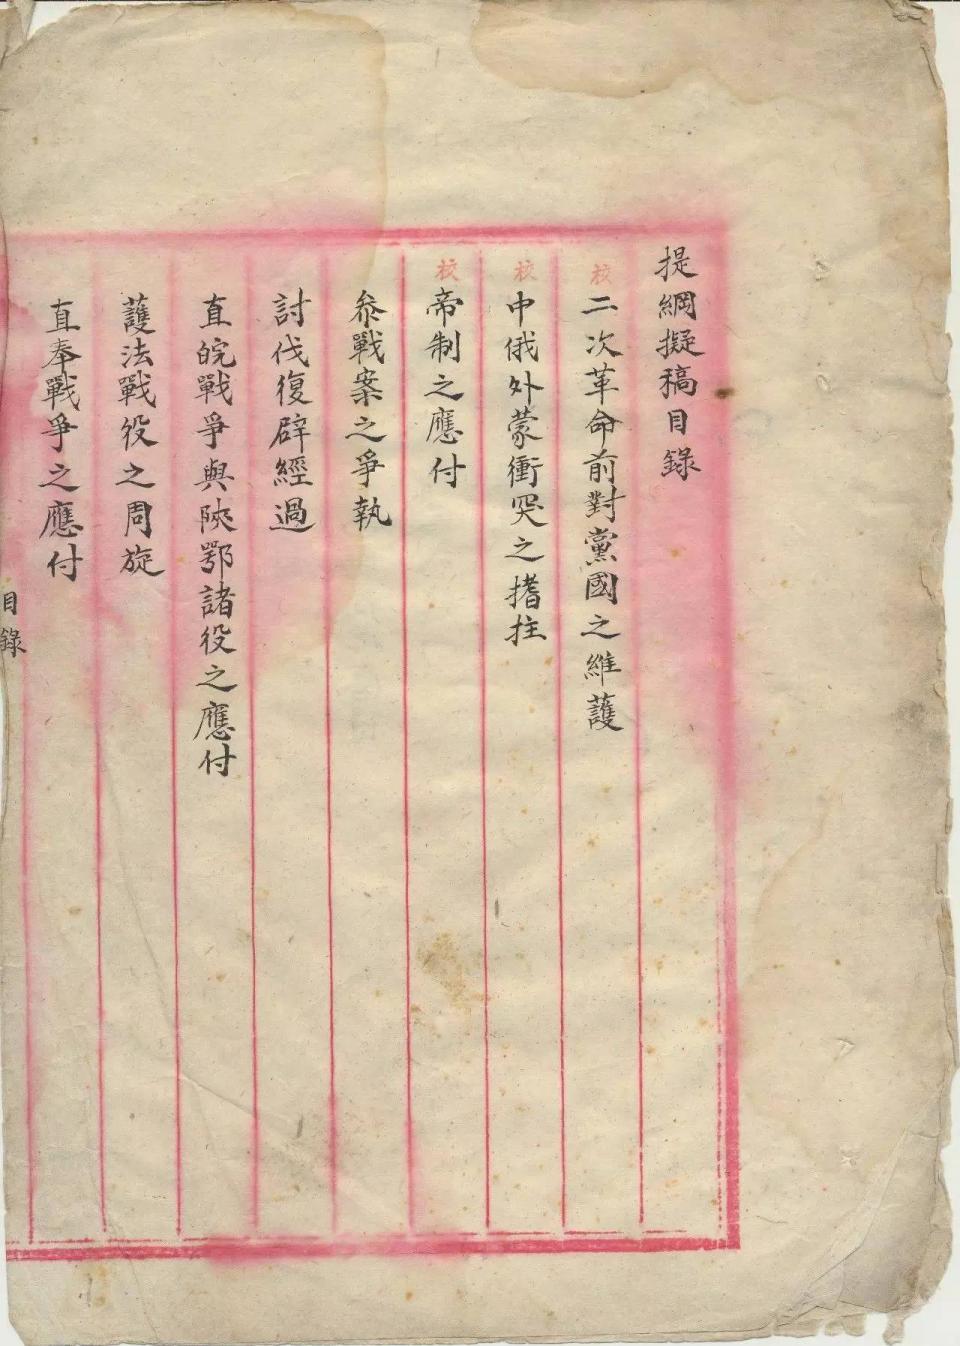 提綱擬稿目錄
校
二次革命前對黨國之維護
校
中俄外蒙衝突之搘拄
校
帝制之應付
參戰案之爭執
討伐復辟經過
直皖戰爭與陝鄂諸役之應付
護法戰役之周旋
直奉戰爭之應付
目錄